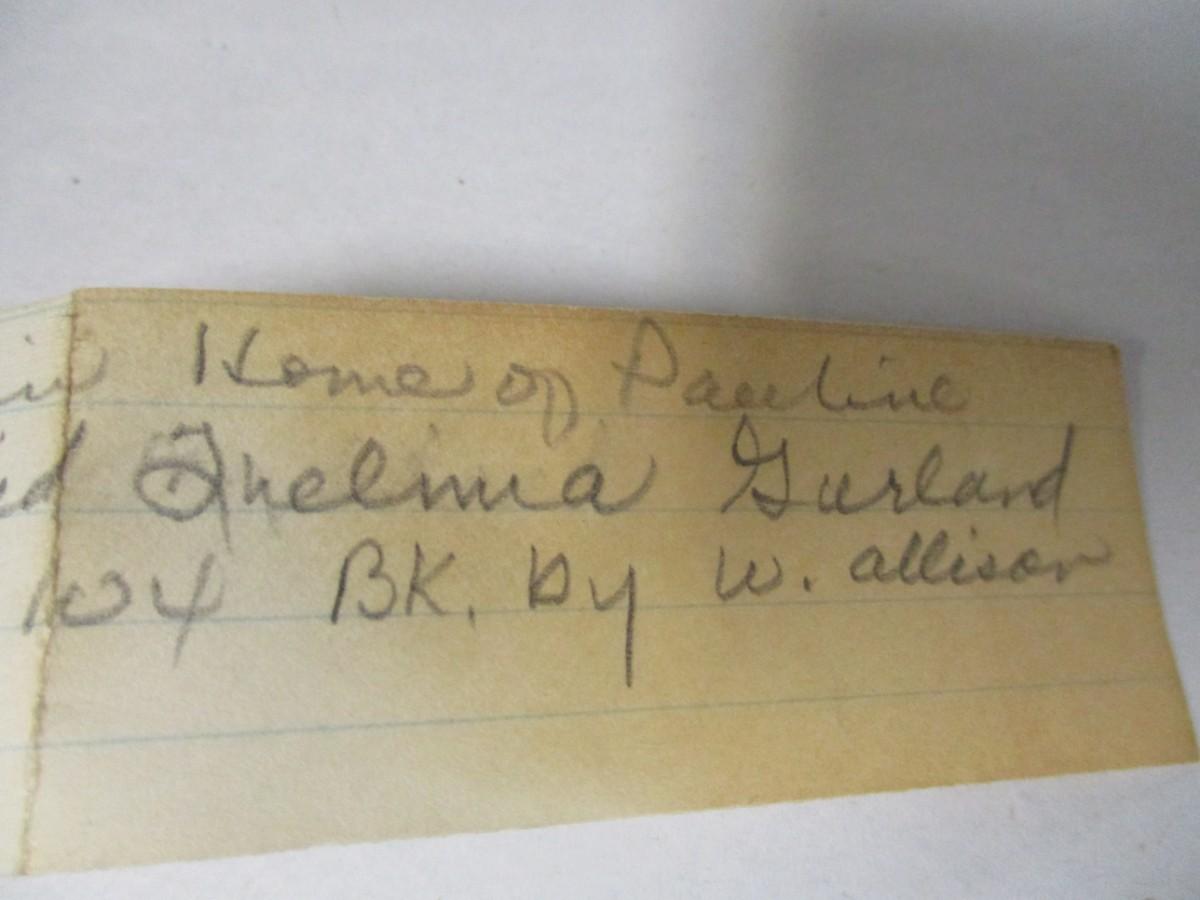 in Home of Pauline
Thelma Garland
104 BK. by W. allison